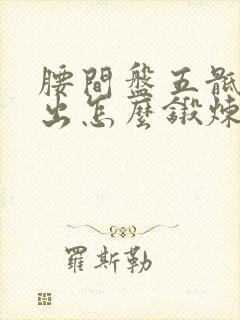 腰間盤五骶
出怎麼鍛煉
羅斯勒